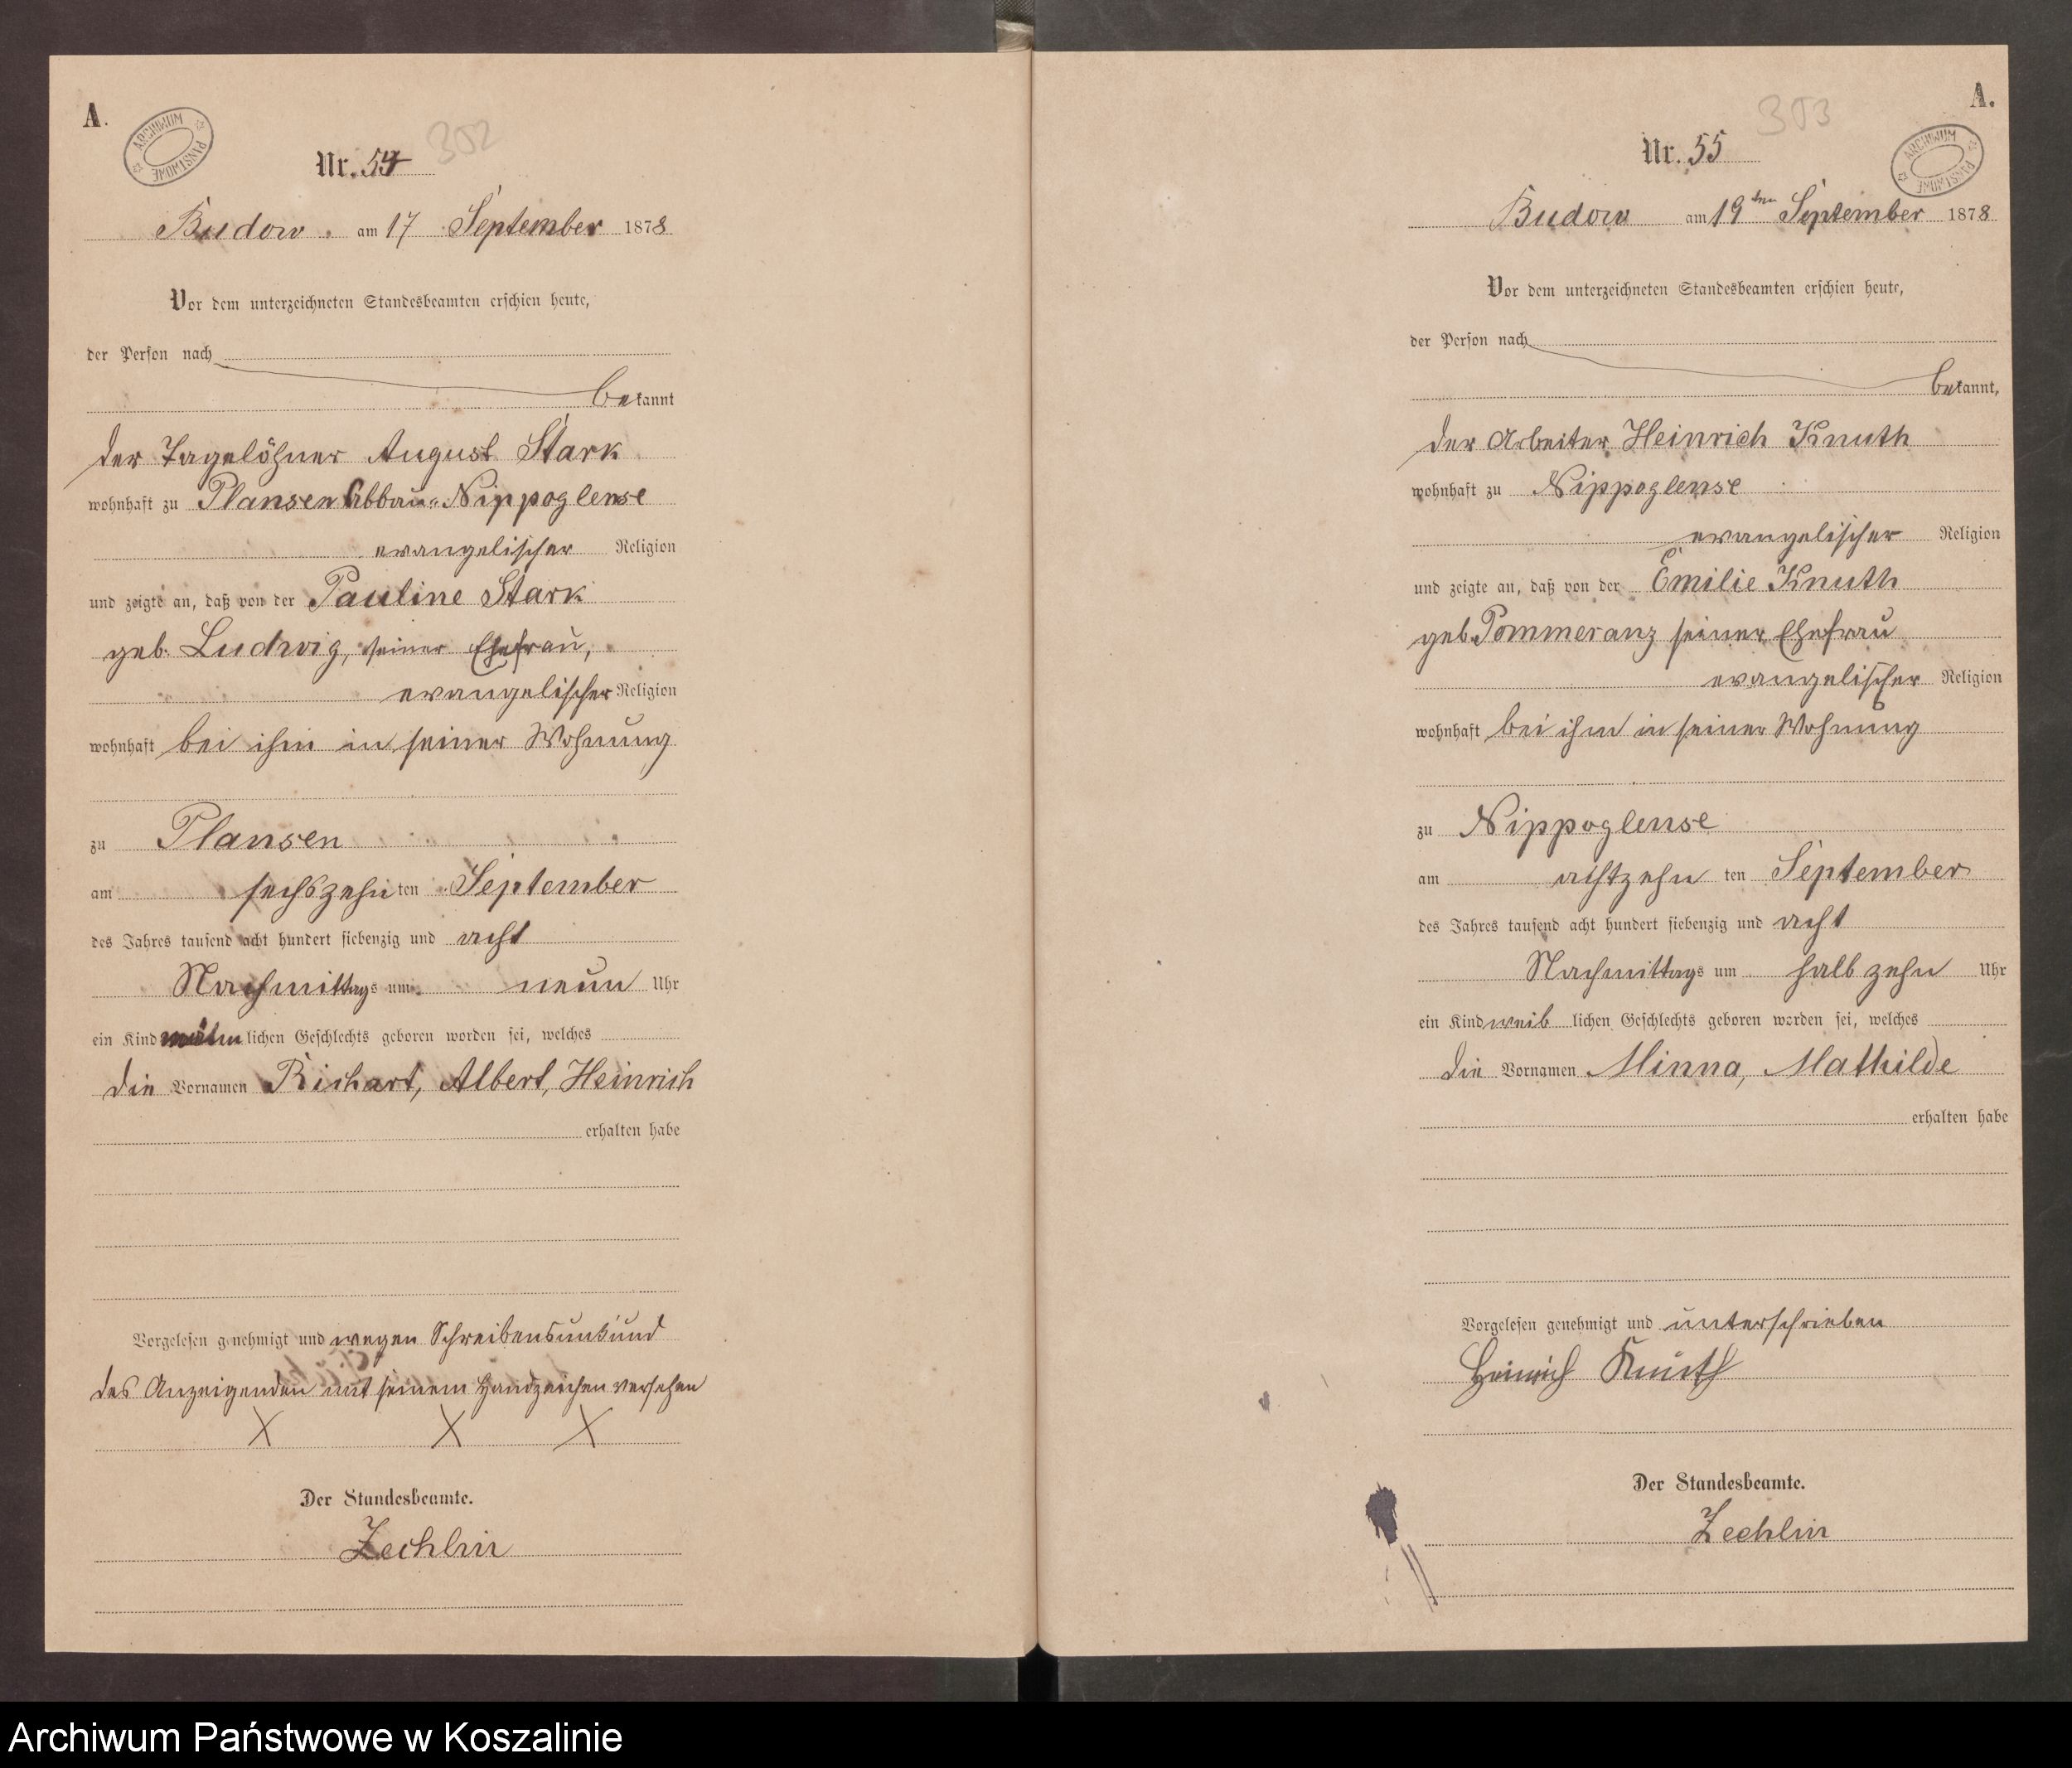 A.
ARCHIWUM PAŃSTWOWE
302
Nr. 54
Budow am 17 September 1878
Vor dem unterzeichneten Standesbeamten erschien heute,
der Person nach
bekannt
der Tagelöhner August Stark
wohnhaft zu Plansen Abbau Nippoglense
evangelischer Religion
und zeigte an, daß von der Pauline Stark
geb. Ludwig, seiner Ehefrau,
evangelischer Religion
wohnhaft bei ihm in seiner Wohnung
zu Plansen
am sechszehnten September
des Jahres tausend acht hundert siebenzig und acht
Nachmittags um neun Uhr
ein Kind männlichen Geschlechts geboren worden sei, welches
die Vornamen Richart, Albert, Heinrich
erhalten habe
Vorgelesen genehmigt und wegen Schreibensunkund
des Anzeigenden mit seinem Handzeichen versehen
X X X
Der Standesbeamte.
Zechlin
A.
ARCHIWUM PAŃSTWOWE
303
Nr. 55
Budow am 19ten September 1878
Vor dem unterzeichneten Standesbeamten erschien heute,
der Person nach
bekannt,
der Arbeiter Heinrich Knuth
wohnhaft zu Nippoglense
evangelischer Religion
und zeigte an, daß von der Emilie Knuth
geb. Pommeranz seiner Ehefrau
evangelischer Religion
wohnhaft bei ihm in seiner Wohnung
zu Nippoglense
am achtzehn ten September
des Jahres tausend acht hundert siebenzig und acht
Nachmittags um halb zehn Uhr
ein Kind weiblichen Geschlechts geboren worden sei, welches
die Vornamen Minna, Mathilde
erhalten habe
Vorgelesen genehmigt und unterschrieben
Heinrich Knuth
Der Standesbeamte.
Zechlin
Archiwum Państwowe w Koszalinie